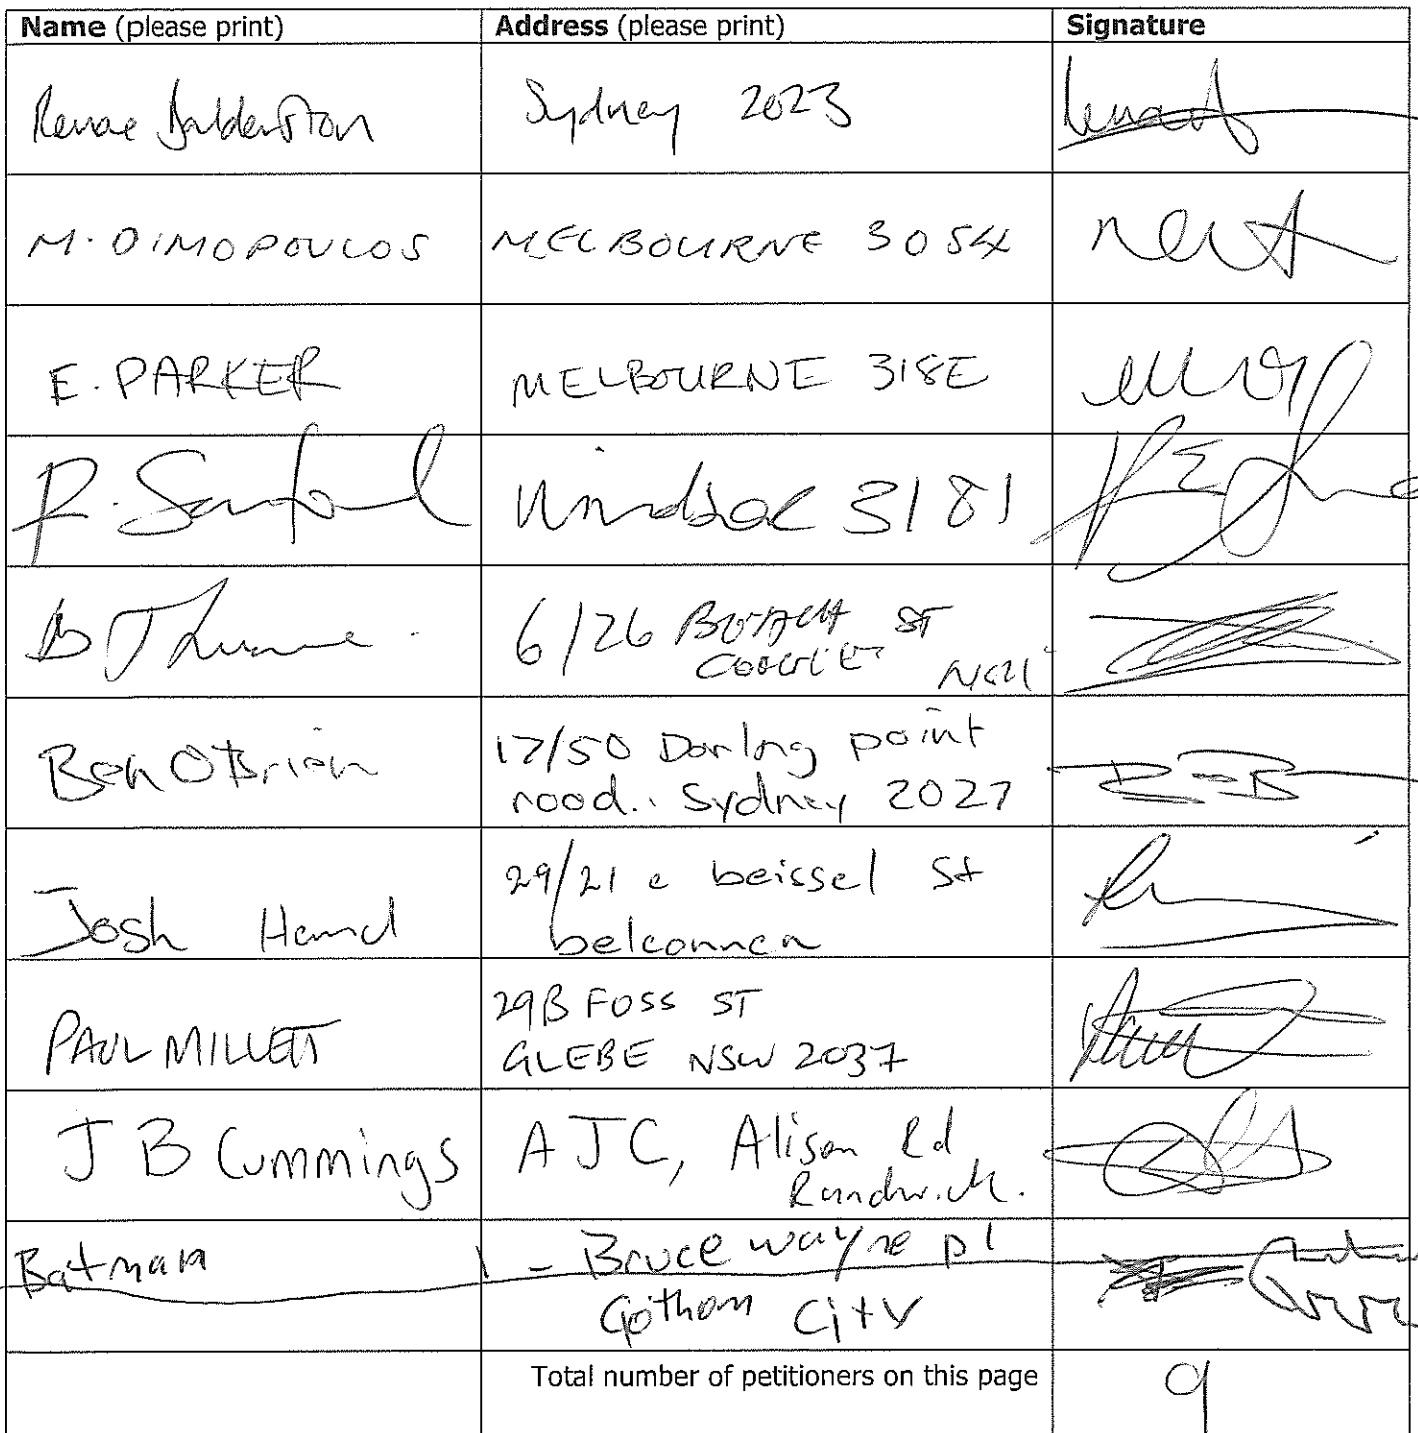 Name (please print) Address (please print) Signature
Renae Balderston Sydney 2023
M. DIMOPOULOS MELBOURNE 3054
E. PARKER MELBOURNE 318E
R. Sanford Windsor 3181
B 6/26 ST
Ben O'Brien 17/50 Darling point
road. Sydney 2027
Josh Hand 29/21 e beissel St
belconnen
PAUL MILLETT 29B FOSS ST
GLEBE NSW 2037
J B Cummings AJC, Alison Rd
Randwick.
Batman 1 - Bruce wayne pl
Gotham City
Total number of petitioners on this page 9